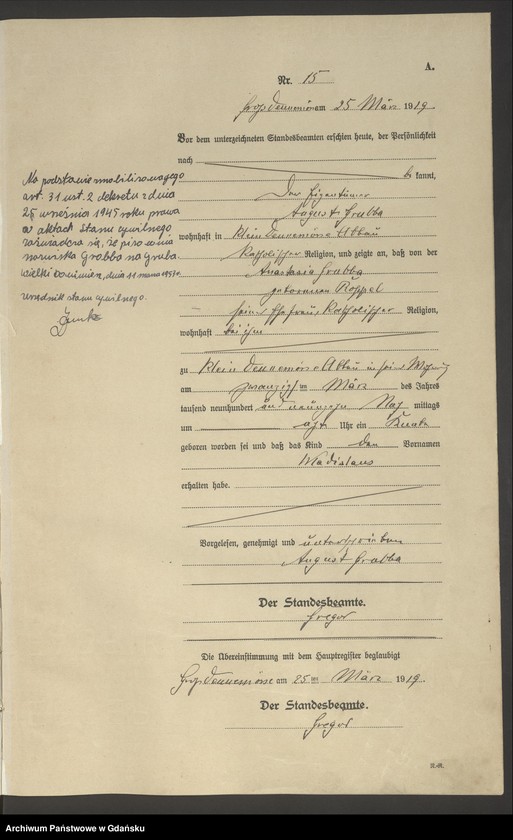 A.
Nr. 15
am 25 März 1919.
Vor dem unterzeichneten Standesbeamten erschien heute, der Persönlichkeit
nach
be kannt,
Der Eigentümer
August Grabba
wohnhaft in Klein Abbau
katholischer Religion, und zeigte an, daß von der
Anastasia Grabba
geborenen
seiner Ehefrau, katholischer Religion,
wohnhaft bei ihm
zu Klein Abbau in seiner Wohnung
am zwanzigsten März des Jahres
tausend neunhundert und neunzehn Nach mittags
um acht Uhr ein Knabe
geboren worden sei und daß das Kind den Vornamen
Wladislaus
erhalten habe.
Vorgelesen, genehmigt und unterschrieben
August Grabba
Der Standesbeamte.
Gregor
Die Übereinstimmung mit dem Hauptregister beglaubigt
am 25ten März 1919.
Der Standesbeamte.
Gregor
Na podstawie
art. 31 ust. 2 dekretu z dnia
25 września 1945 roku prawa
o aktach stanu cywilnego
zaświadcza się, że pisownia
nazwiska Grabba na Graba
dnia 11 marca
urzędnik stanu cywilnego.
Archiwum Państwowe w Gdańsku